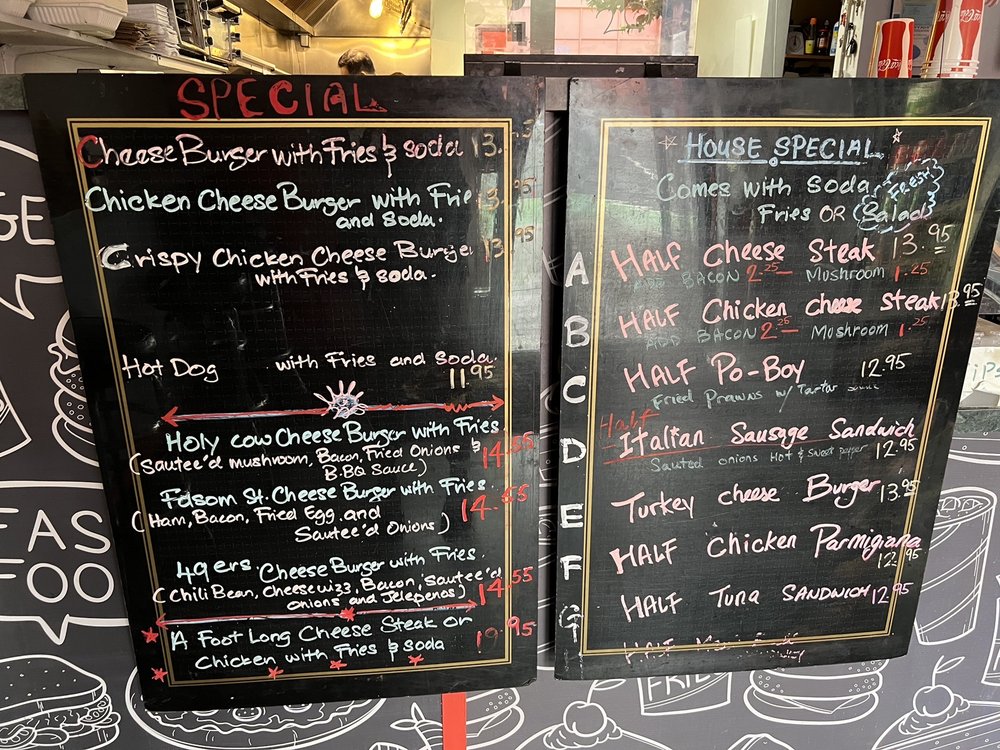 SPECIAL
Cheese Burger with Fries & soda 13.
Chicken Cheese Burger with Frie 13.95
and soda.
Crispy Chicken Cheese Burge 13.95
with Fries & soda.
Hot Dog with Fries and soda.
11.95
Holy cow Cheese Burger with Fries
(Sautee'd mushroom, Bacon, Fried Onions & 14.55
B.BQ Sauce)
Folsom St. Cheese Burger with Fries.
(Ham, Bacon, Fried Egg, and 14.55
Sautee'd Onions)
49ers. Cheese Burger with Fries.
(Chili Bean, Cheesewizz, Bacon, Sautee'd 14.55
onions and Jelepenos)
A Foot Long Cheese Steak or 19.95
Chicken with Fries & soda
HOUSE SPECIAL
Comes with Soda FRESH
Fries OR Salad
A HALF Cheese Steak 13.95
ADD BACON 2.25 Mushroom 1.25
B HALF Chicken cheese steak 13.95
ADD BACON 2.25 Mushroom 1.25
C HALF Po-Boy 12.95
Fried Prawns w/ Tartar
Half
D Italian Sausage Sandwich
Sauted onions Hot & Sweet pepper 12.95
E Turkey cheese Burger 13.95
F HALF Chicken Parmigiana
12.95
G HALF Tuna SANDWICH 12.95
HALF
GE
FAS
FOO
FRIE